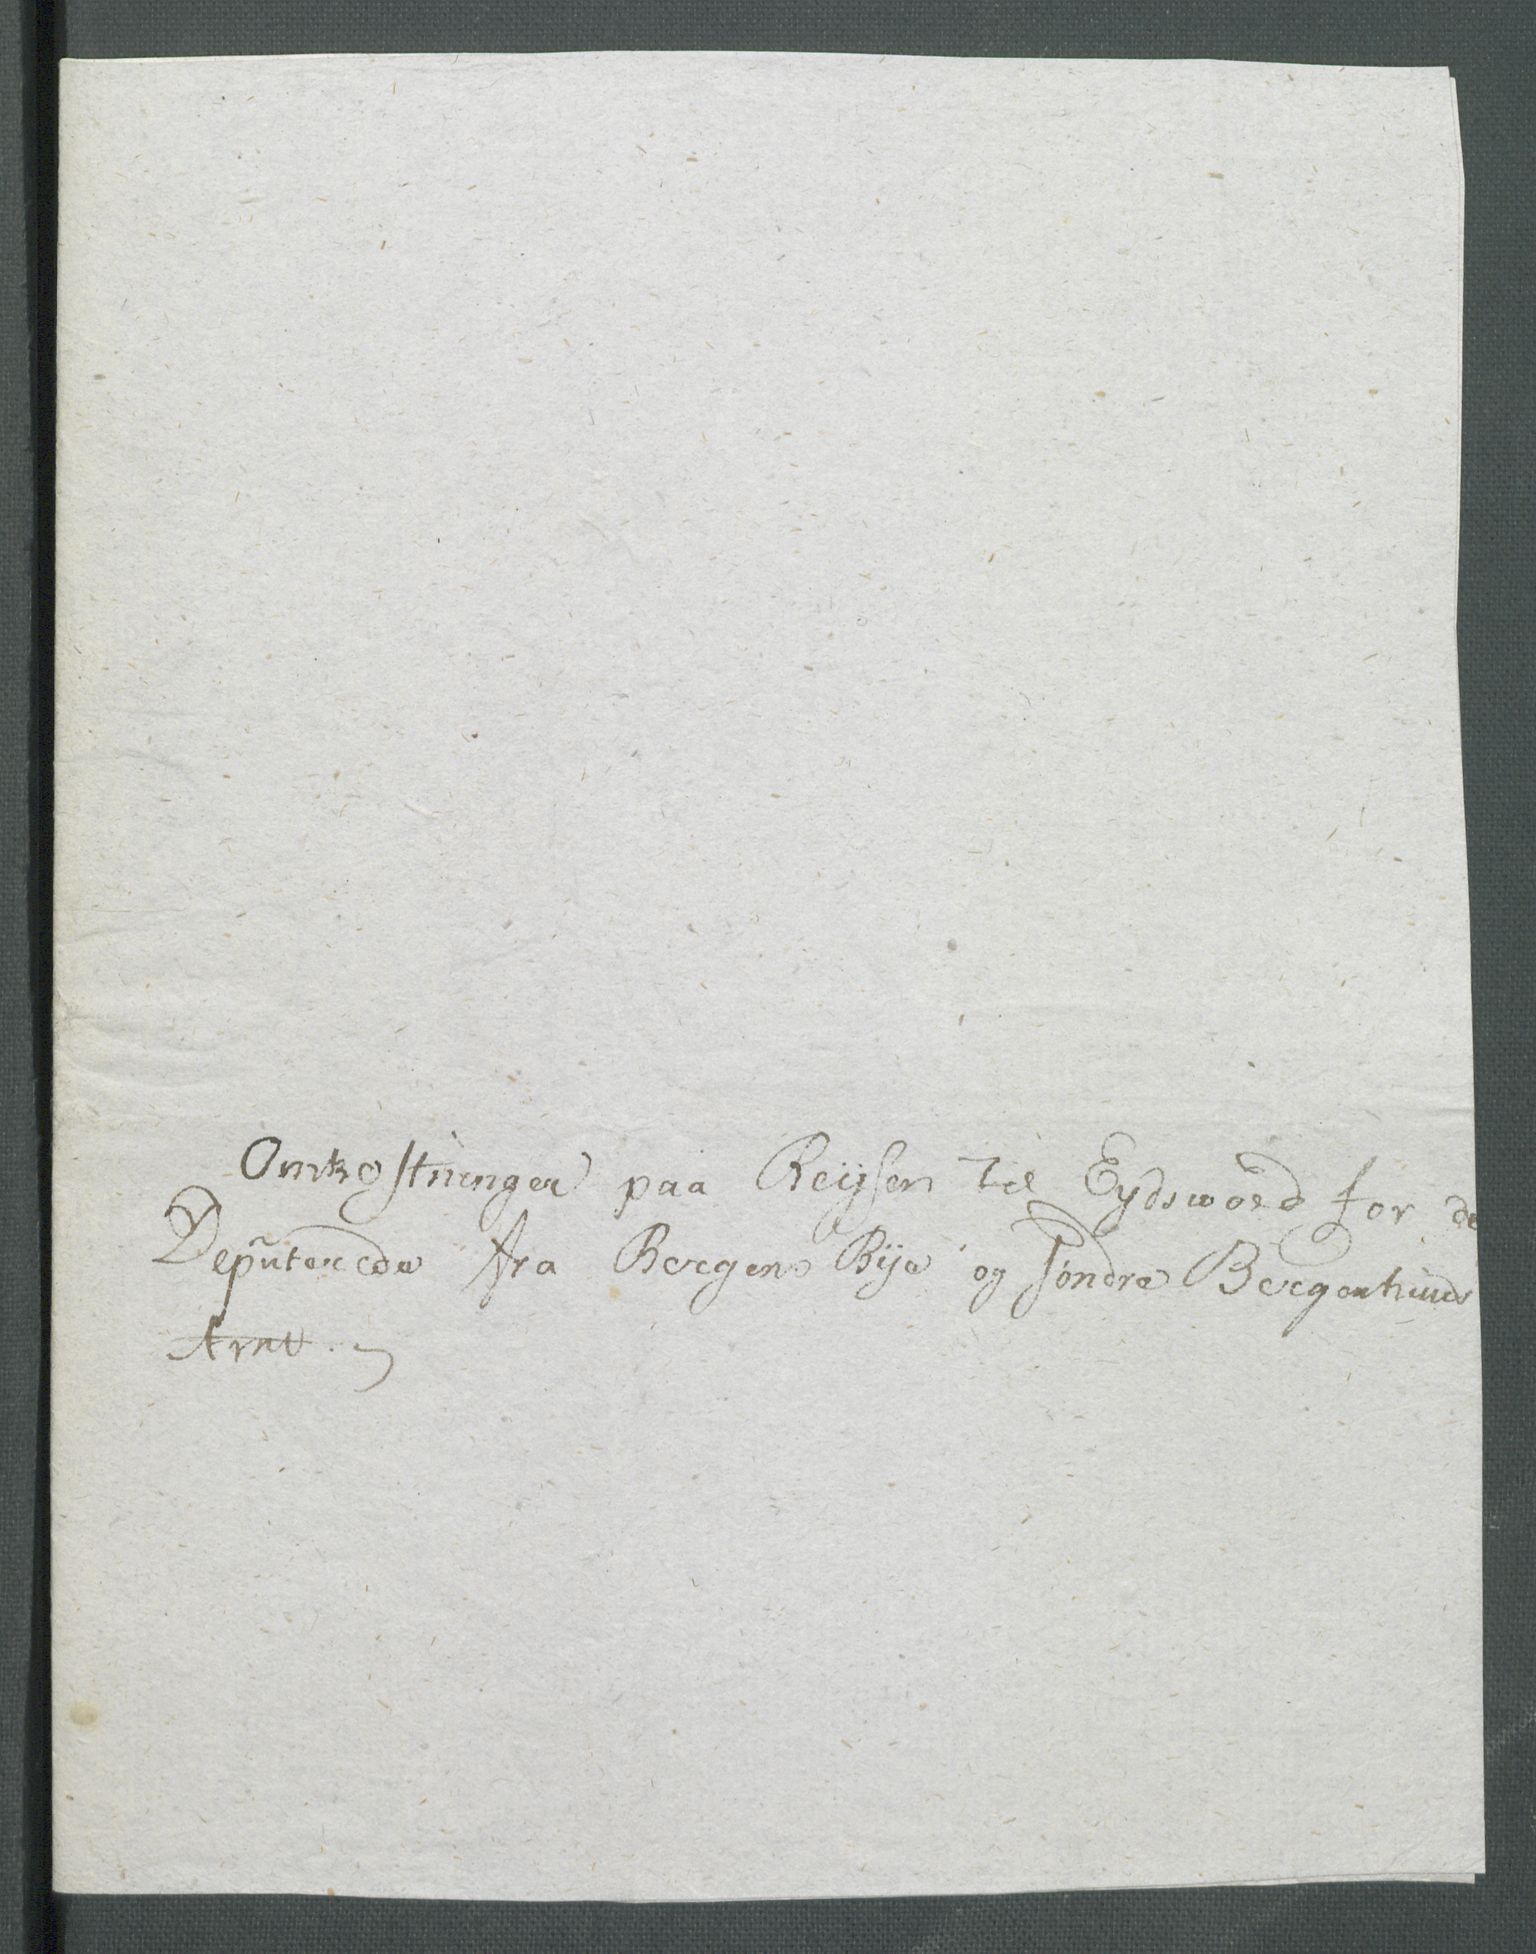 Omkostninger paa Reijsen til Eydswold for de
Deputerede fra Bergens Bije og söndre Bergenhuus
Amt.